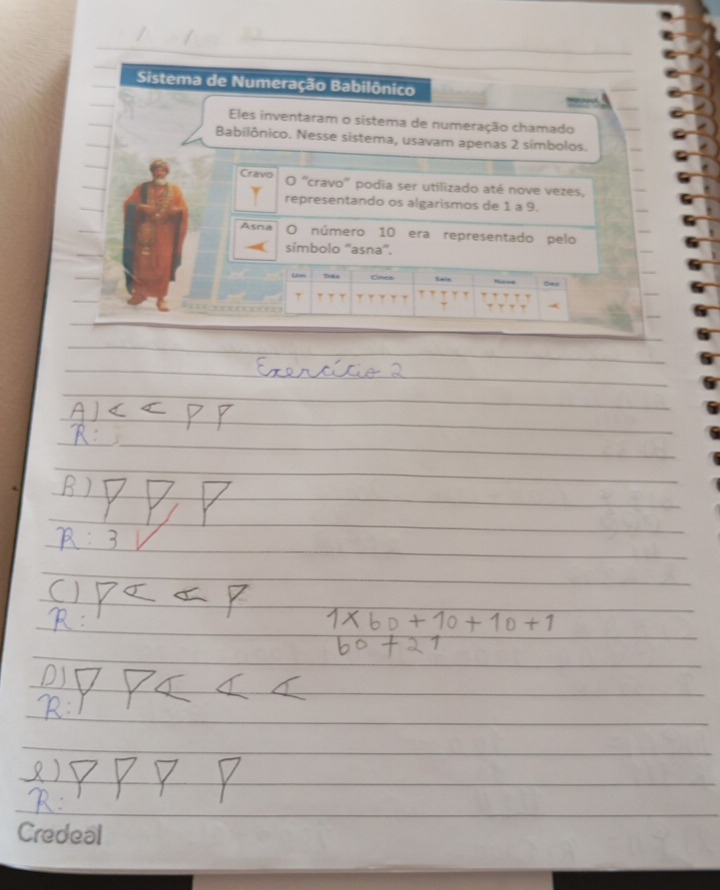 / /
Sistema de Numeração Babilônico
Eles inventaram o sistema de numeração chamado
Babilônico. Nesse sistema, usavam apenas 2 símbolos.
Cravo
O "cravo" podia ser utilizado até nove vezes,
representando os algarismos de 1 a 9.
Asna
O número 10 era representado pelo
símbolo "asna".
Um Três Cinco Seis Nove Dez
Exercício 2
A)
R:
B)
R: 3
C)
R:
1×60+10+10+1
60+21
D)
R:
e)
R:
Credeal